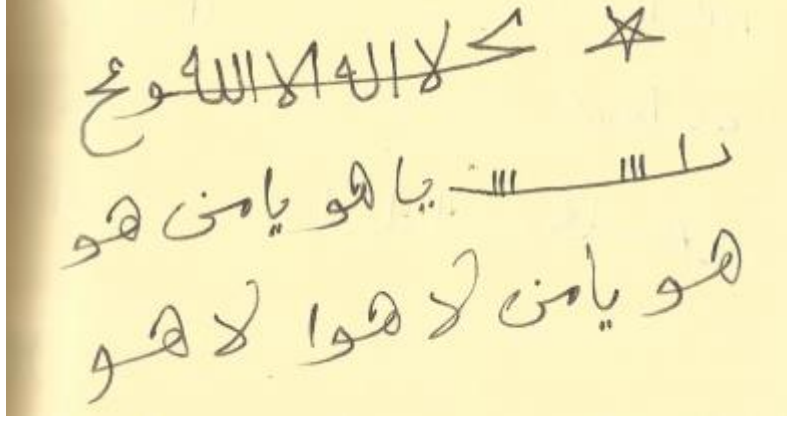 لا اله الا الله
يا هو يا من هو
هو يا من لا هوا لا هو